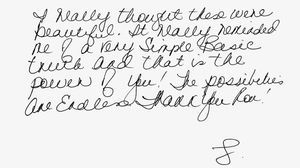 I Really thought these were
beautiful. It Really Reminded
me of a very Simple Basic
truth and that is the
power of You! The possibilities
are Endless Thank You Ron!
S.